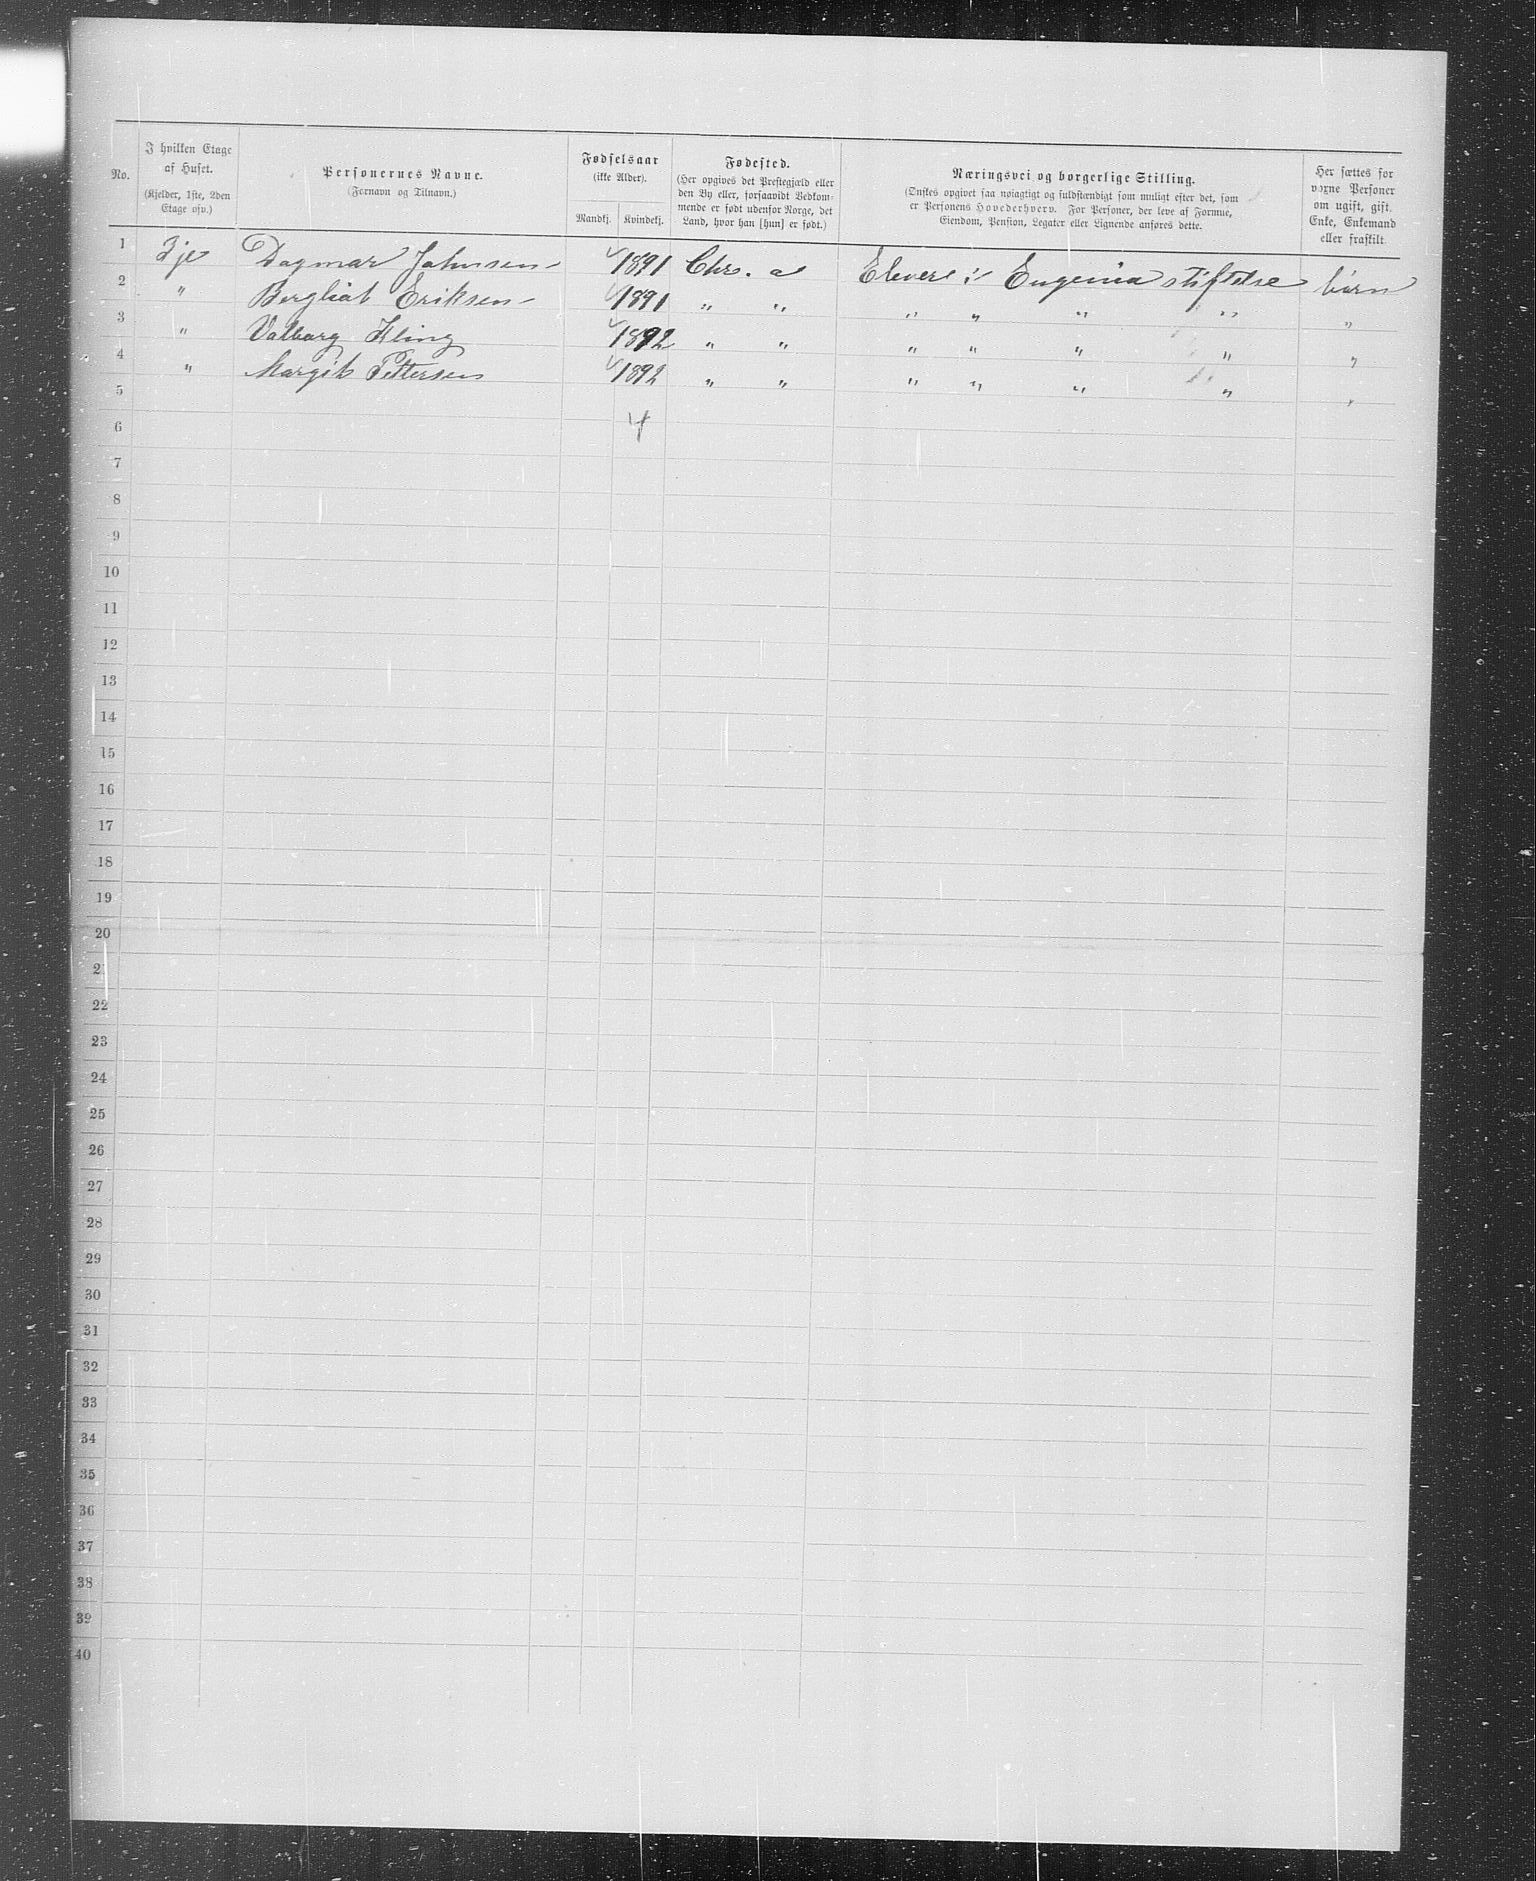 No. | I hvilken Etage af Huset. (Kjelder, 1ste, 2den Etage osv.) | Personernes Navne. (Fornavn og Tilnavn.) | Fødselsaar (ikke Alder). Mandkj. Kvindekj. | Fødested. (Her opgives det Præstegjæld eller den By eller, forsaavidt Vedkommende er født udenfor Norge, det Land, hvor han [hun] er født.) | Næringsvei og borgerlige Stilling. (Ønskes opgivet saa nøiagtigt og fuldstændigt som muligt efter det, som er Personens Hovederhverv. For Personer, der leve af Formue, Eiendom, Pension, Legater eller Lignende anføres dette. | Her sættes for voxne Personer om ugift, gift, Enke, Enkemand eller fraskilt.
1 3je Dagmar Johnsen 1891 Chr. a Elever i Eugenia stiftelse börn
2 " Bergliot Eriksen 1891 " " " " " " "
3 " Valborg Kling 1892 " " " " " " "
4 " Margit Pettersen 1892 " " " " " " "
5
6 4
7
8
9
10
11
12
13
14
15
16
17
18
19
20
21
22
23
24
25
26
27
28
29
30
31
32
33
34
35
36
37
38
39
40